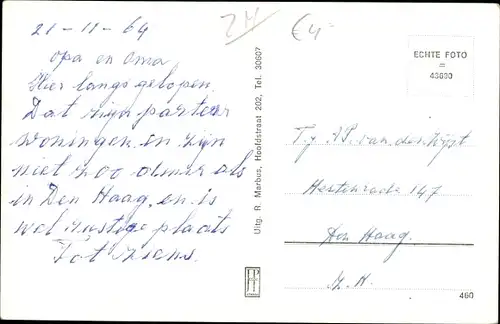 21-11-64
opa en oma
Hier langs gelopen.
Dat zijn parterr
woningen en zijn
niet zoo als
in Den Haag. en is
wel rustige plaats
Tot ziens.
ZH
€4
Uitg. R. Marbus, Hoofdstraat 202, Tel. 30607
ECHTE FOTO
=
43630
Fr. A.P. van der
147
Den Haag.
Z.H.
460